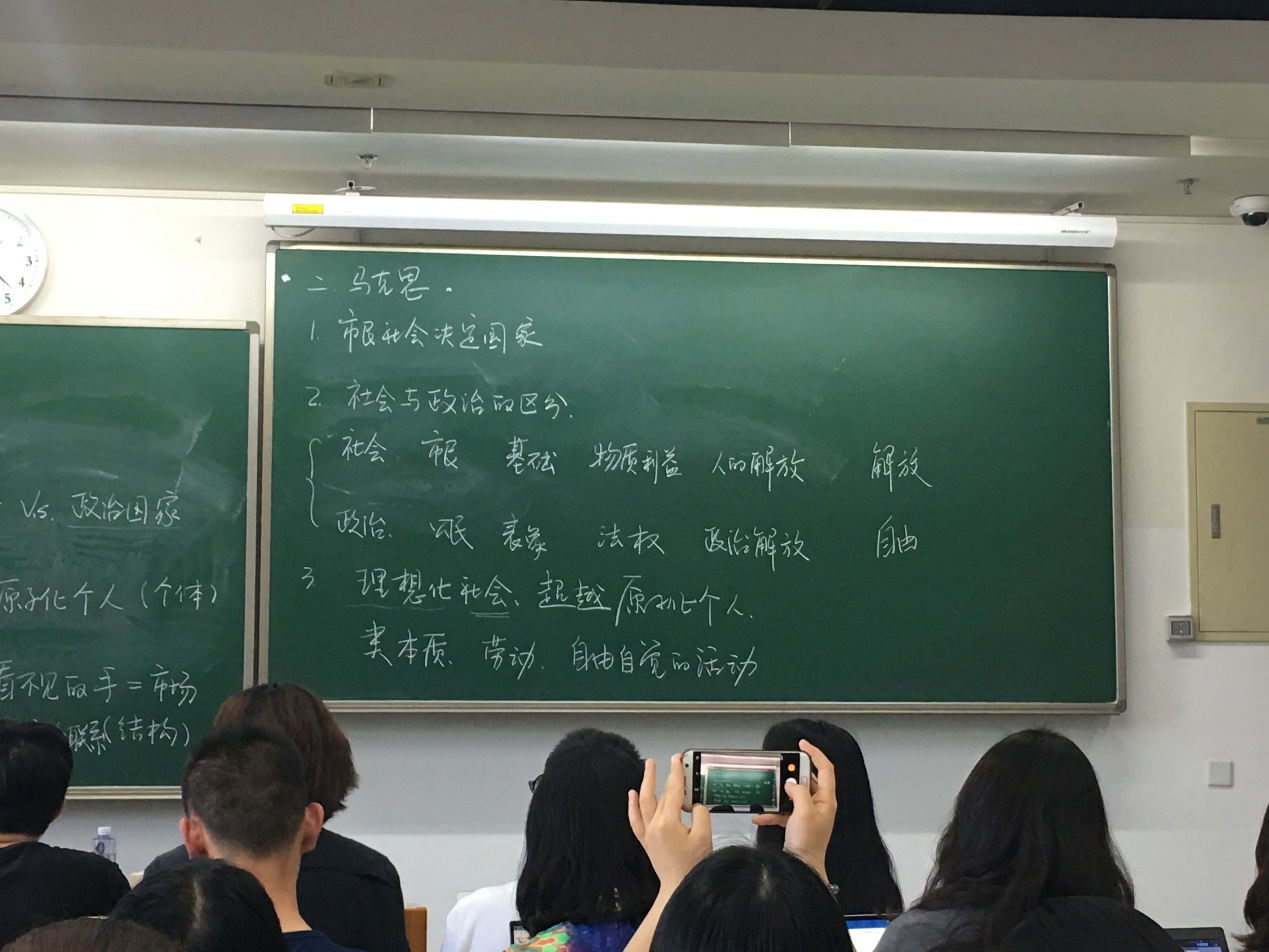 2
3
4
5
Vs. 政治国家
原子化个人(个体)
看不见的手=市场
联系(结构)
二、马克思.
1. 市民社会决定国家
2. 社会与政治的区分.
社会. 市民 基础 物质利益 人的解放 解放
政治. 公民 表象 法权 政治解放 自由
3 理想化社会、超越原子化个人.
类本质、劳动、自由自觉的活动